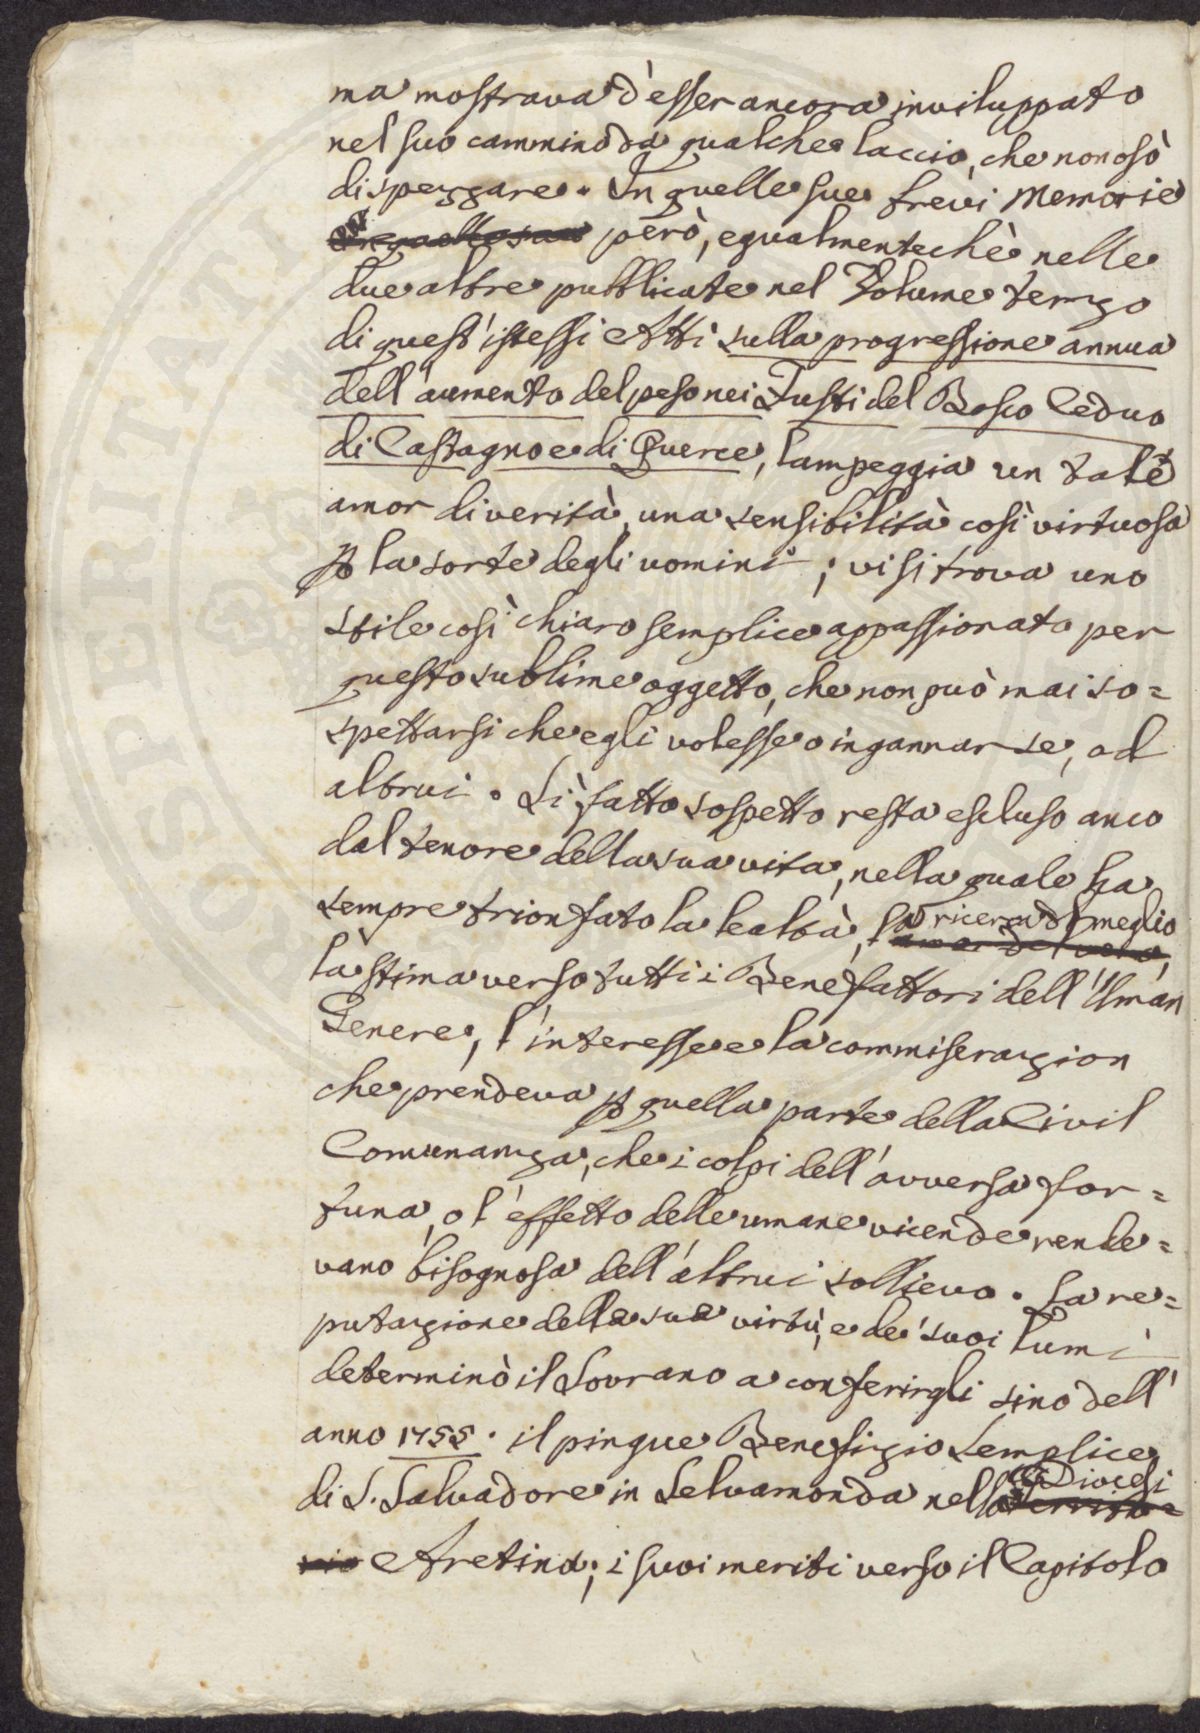 ma mostrava d'esser ancora inviluppato
nel suo cammino da qualche laccio, che non osò
di spezzare. In quelle sue brevi Memorie
però, egualmentechè nelle
due altre pubblicate nel Volume terzo
di quest'istessi Atti sulla progressione annua
dell'aumento del peso nei Fusti del Bosco Ceduo
di Castagno e di Querce, lampeggia un tale
amor di verità, una sensibilità così virtuosa
p la sorte degli uomini; vi si trova uno
stile così chiaro semplice appassionato per
questo sublime oggetto, che non può mai so=
spettarsi che egli volesse o ingannar se, od
altrui. Sì fatto sospetto resta escluso anco
dal tenore della sua vita, nella quale ha
sempre trionfato la lealtà, la ricerca del meglio
la stima verso tutti i Benefattori dell'Uman
Genere, l'interesse e la commiserazion
che prendeva p quella parte della Civil
Comunanza, che i colpi dell'avversa for=
tuna, o l'effetto delle umane vicende rende=
vano bisognosa dell'altrui sollievo. La re=
putazione della sua virtù, e de' suoi lumi
determinò il Sovrano a conferirgli sino dell'
anno 1755. il pingue Benefizio Semplice
di S. Salvadore in Selvamonda nella Diocesi
Aretina; i suoi meriti verso il Capitolo
SPERITATI